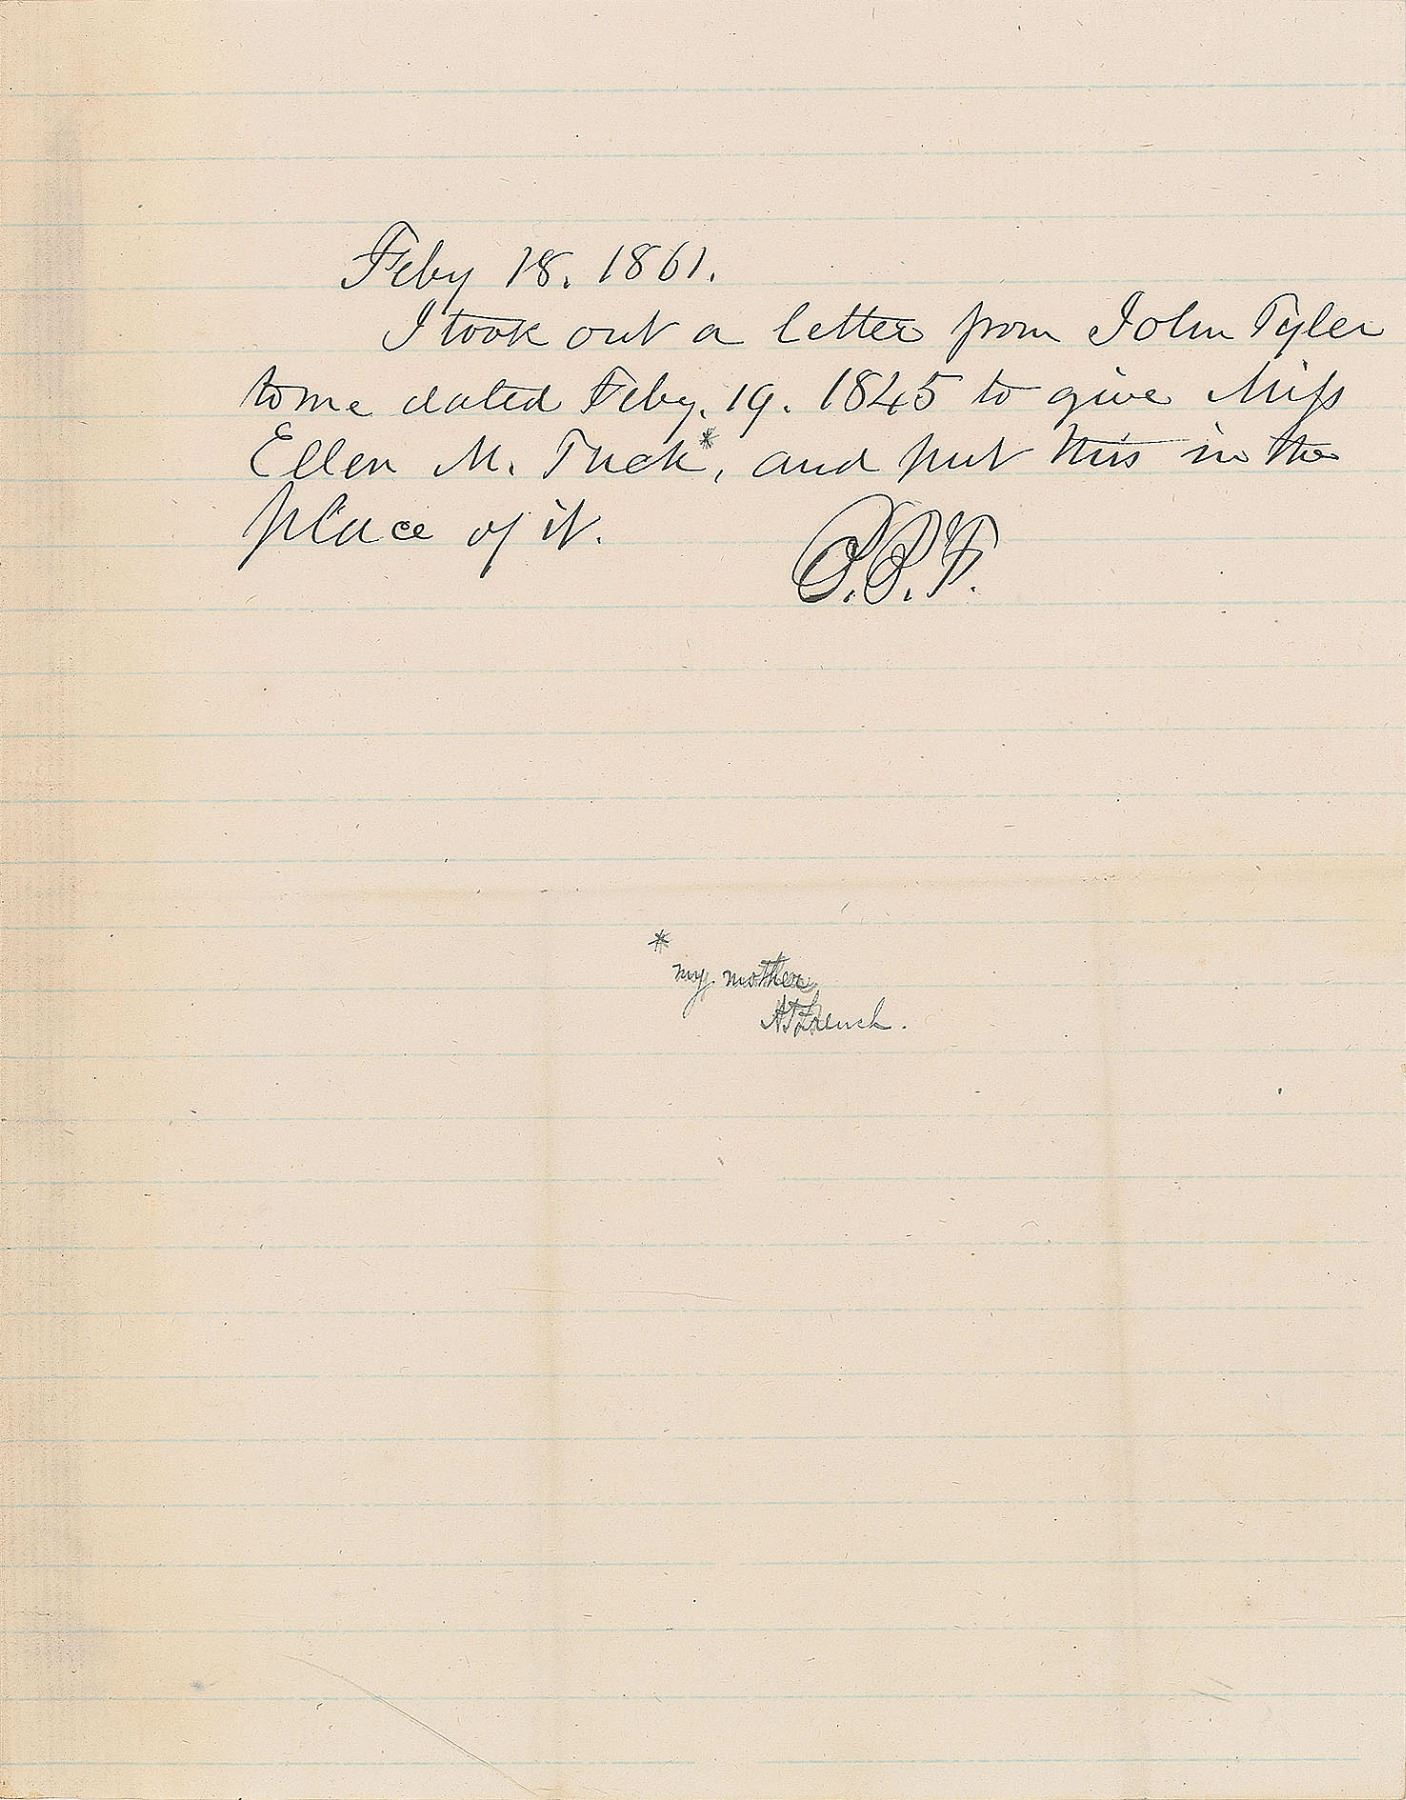 Feby 18. 1861.
I took out a letter from John Tyler
to me dated Feby. 19. 1845 to give Miss
Ellen M. Tuck*, and put this in the
place of it.
B.B.F.
*
my mother
A T French.